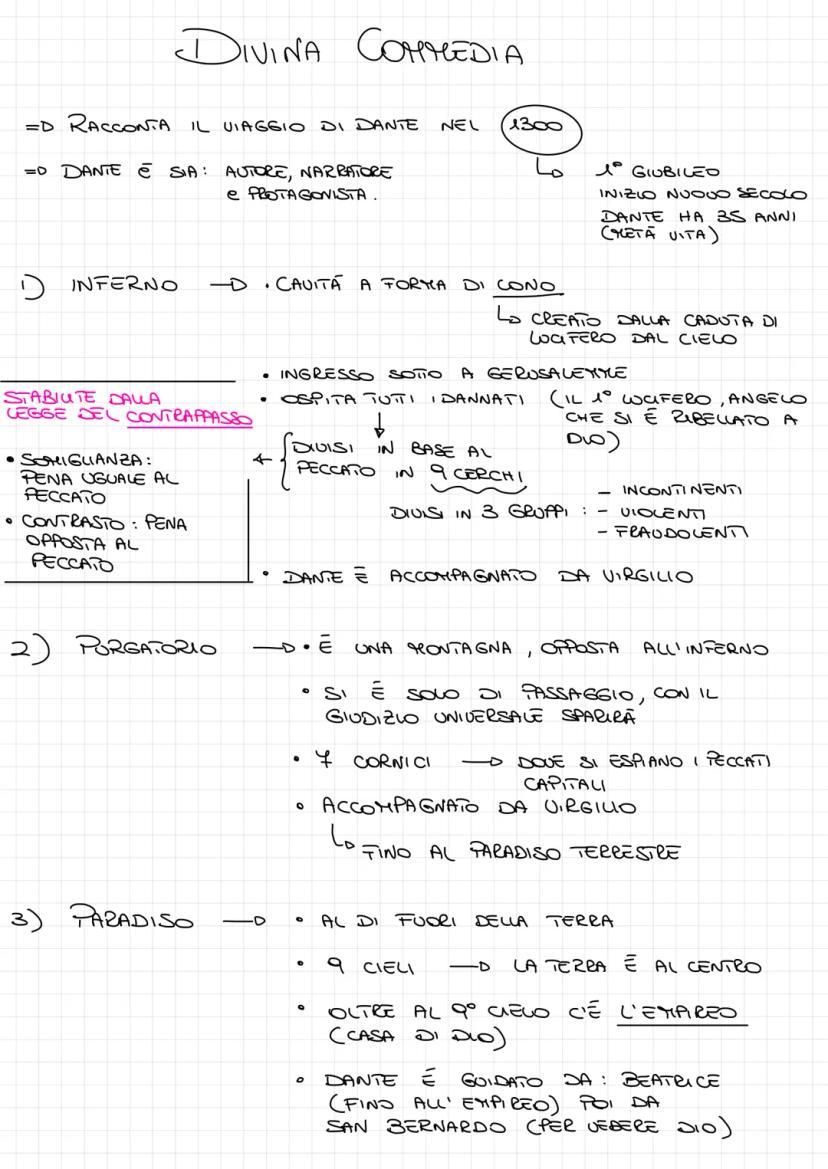 DIVINA COMMEDIA
=D RACCONTA IL VIAGGIO DI DANTE NEL 1300
=D DANTE È SIA: AUTORE, NARRATORE
e PROTAGONISTA.
1° GIUBILEO
INIZIO NUOVO SECOLO
DANTE HA 35 ANNI
(METÀ VITA)
1) INFERNO → • CAVITÀ A FORMA DI CONO
↳ CREATO DALLA CADUTA DI
LUCIFERO DAL CIELO
• INGRESSO SOTTO A GERUSALEMME
• OSPITA TUTTI I DANNATI (IL 1° LUCIFERO, ANGELO
CHE SI È RIBELLATO A
DIO)
DIVISI IN BASE AL
PECCATO IN 9 CERCHI
DIVISI IN 3 GRUPPI :
- INCONTINENTI
- VIOLENTI
- FRAUDOLENTI
STABILITE DALLA
LEGGE DEL CONTRAPPASSO
• SOMIGLIANZA:
PENA UGUALE AL
PECCATO
• CONTRASTO: PENA
OPPOSTA AL
PECCATO
• DANTE È ACCOMPAGNATO DA VIRGILIO
2) PURGATORIO → • È UNA MONTAGNA, OPPOSTA ALL'INFERNO
• SI È SOLO DI PASSAGGIO, CON IL
GIUDIZIO UNIVERSALE SPARIRÀ
• 7 CORNICI → DOVE SI ESPIANO I PECCATI
CAPITALI
• ACCOMPAGNATO DA VIRGILIO
↳ FINO AL PARADISO TERRESTRE
3) PARADISO → • AL DI FUORI DELLA TERRA
• 9 CIELI → LA TERRA È AL CENTRO
• OLTRE AL 9° CIELO C'È L'EMPIREO
(CASA DI DIO)
• DANTE È GUIDATO DA: BEATRICE
(FINO ALL'EMPIREO) POI DA
SAN BERNARDO (PER VEDERE DIO)